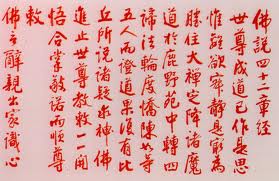 佛說四十二章經
世尊成道已作是思
惟離欲寂靜是為
勝住大禪定降諸魔
道於鹿野苑中轉四
諦法輪度憍陳如等
五人而證道果復有比
丘所說諸疑求佛
進止世尊教敕一一開
悟合掌敬諾而順尊
敕
佛言辭親出家識心